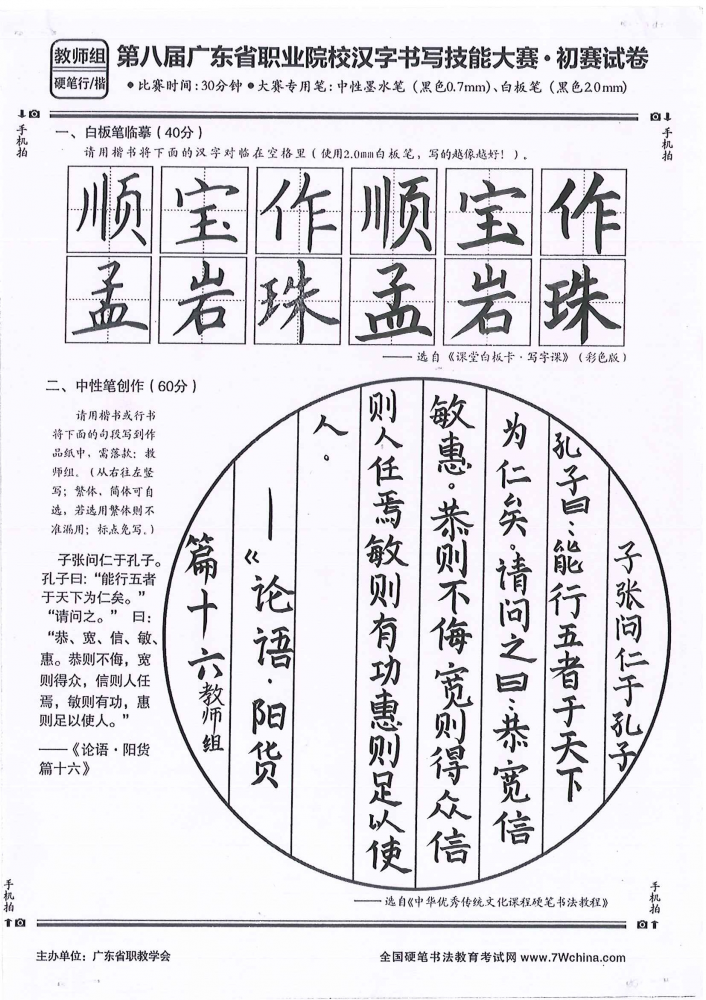 教师组
硬笔行/楷
第八届广东省职业院校汉字书写技能大赛·初赛试卷
●比赛时间:30分钟●大赛专用笔:中性墨水笔(黑色0.7mm)、白板笔(黑色2.0mm)
手机拍
手机拍
一、白板笔临摹(40分)
请用楷书将下面的汉字对临在空格里(使用2.0mm白板笔，写的越像越好!)。
顺宝作顺宝作
孟岩珠孟岩珠
——选自《课堂白板卡·写字课》(彩色版)
二、中性笔创作(60分)
请用楷书或行书
将下面的句段写到作
品纸中，需落款：教
师组。(从右往左竖
写；繁体、简体可自
选，若选用繁体则不
准漏用；标点免写。)
子张问仁于孔子。
孔子曰：“能行五者
于天下为仁矣。”
“请问之。” 曰：
“恭、宽、信、敏、
惠。恭则不侮，宽
则得众，信则人任
焉，敏则有功，惠
则足以使人。”
——《论语·阳货
篇十六》
子张问仁于孔子
孔子曰：能行五者于天下
为仁矣。请问之曰：恭宽信
敏惠。恭则不侮宽则得众信
则人任焉敏则有功惠则足以使
人。
—《论语·阳货
篇十六教师组
——选自《中华优秀传统文化课程硬笔书法教程》
手机拍
手机拍
主办单位：广东省职教学会
全国硬笔书法教育考试网 www.7Wchina.com